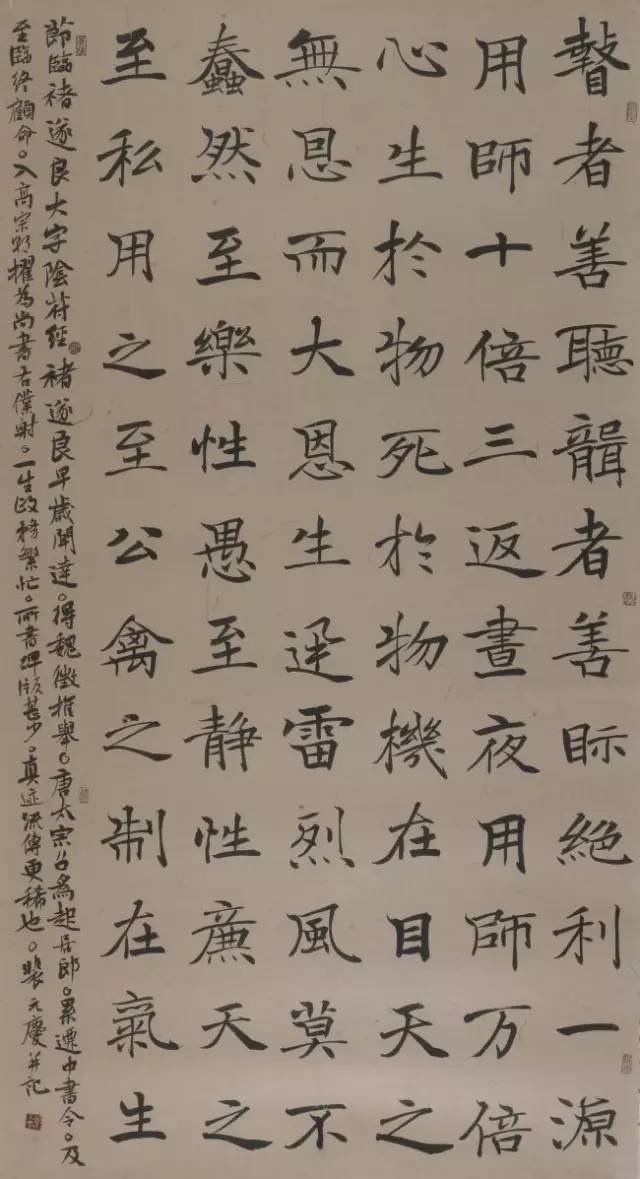 瞽者善聽聾者善眎絕利一源
用師十倍三返晝夜用師万倍
心生於物死於物機在目天之
無恩而大恩生迅雷烈風莫不
蠢然至樂性愚至静性廉天之
至私用之至公禽之制在氣生
節臨褚遂良大字陰符經褚遂良早歲聞達得魏徵推舉唐太宗召為起居郎累遷中書令及
至臨終顧命入高宗朝擢為尚書右僕射一生政務繁忙所書碑版甚少真迹流傳更稀也裴元慶并記